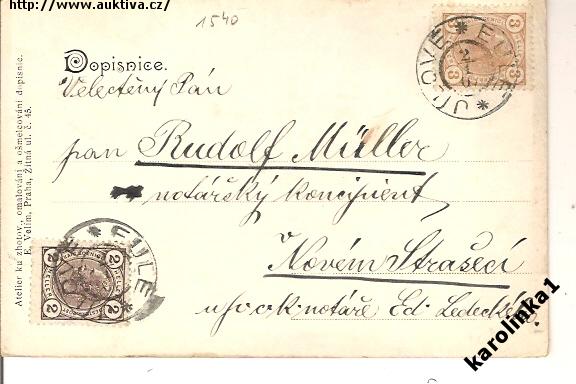 http://www.auktiva.cz/
1540
Dopisnice.
Velectěný Pán
pan Rudolf Müller
notářský koncipient
v Novém Strašecí
u p. c.k. notáře Ed. Ledeckého.
Atelier ku zhotov., omalování a ošmelcování dopisnic.
E. Velím, Praha, Žitná ul. č. 45.
JÍLOVÉ * EULE *
3 3
3 3
EULE *
2 2
2 2
karolinka1